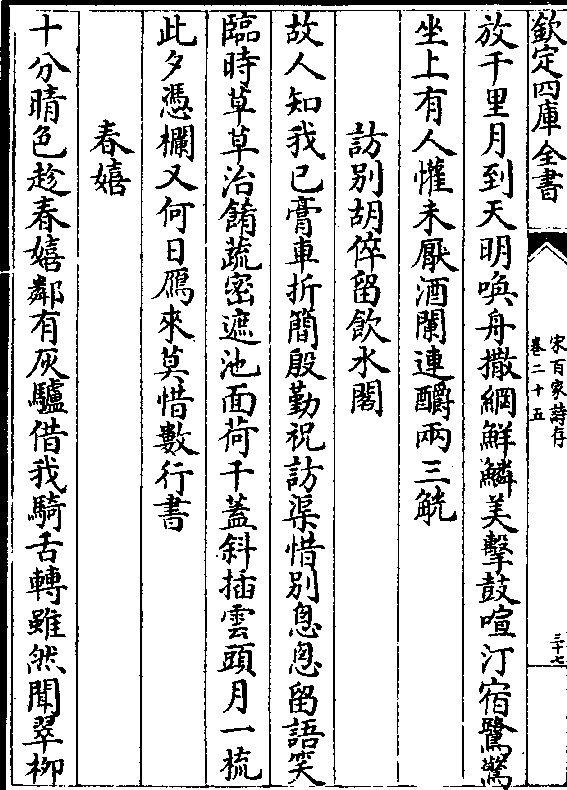 欽定四庫全書
宋百家詩存
卷二十五
三十七
放千里月到天明喚舟撒網鮮鱗美擊鼓喧汀宿鷺驚
坐上有人懽未厭酒闌連釂兩三觥
訪别胡倅留飲水閣
故人知我已膏車折簡殷勤祝訪渠惜别怱怱留語笑
臨時草草治餚蔬密遮池面荷千蓋斜插雲頭月一梳
此夕憑欄又何日鴈來莫惜數行書
春嬉
十分晴色趁春嬉鄰有灰驢借我騎舌轉雖然聞翠柳